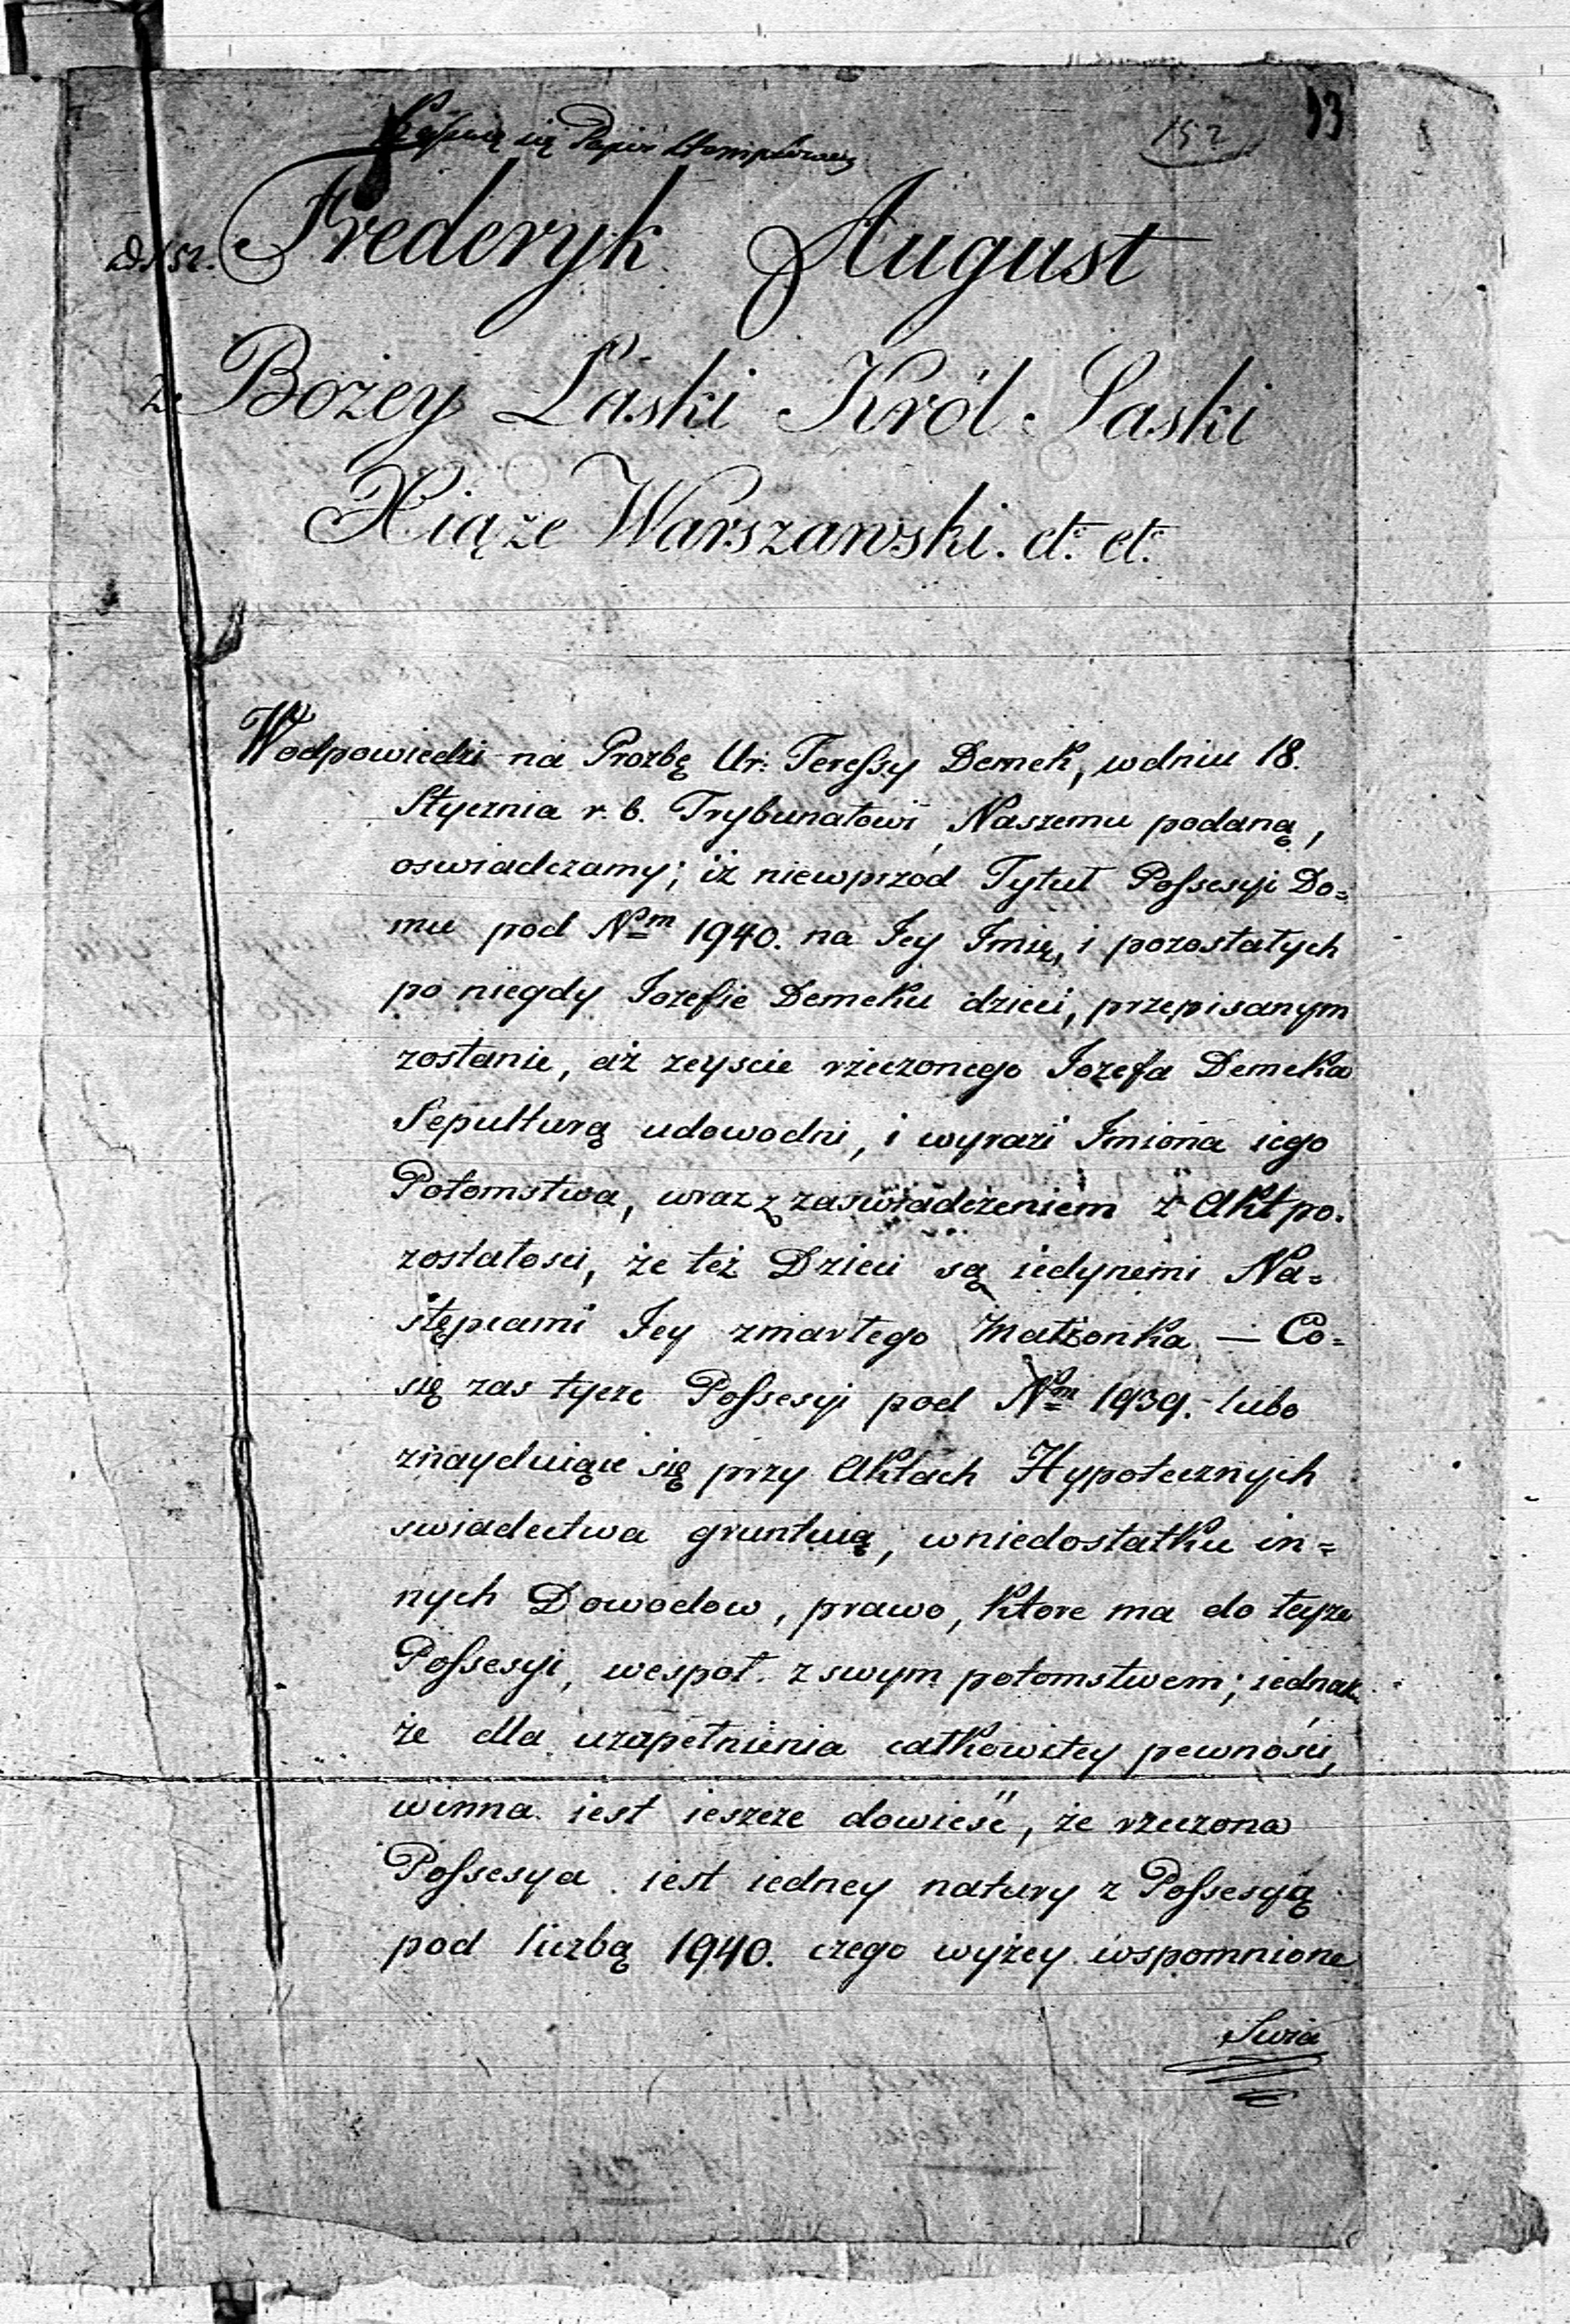 się Papier Stemplowy
152
13
Frederyk August
z Bożey Łaski Król Saski
Xiąże Warszawski. et: et:
W odpowiedzi na Prozbę Ur: Teressy Demek, w dniu 18.
Stycznia r. b. Trybunałowi Naszemu podaną,
oswiadczamy; iż niewprzód Tytuł Possesyi Do=
mu pod Nm 1940. na Jey Imię, i pozostałych
po niegdy Iozefie Demeku dzieci, przepisanym
zostanie, aż zeyscie rzeczonego Iozefa Demeka
Sepulturą udowodni, i wyrazi Imiona iego
Potomstwa, wraz z zaswiadczeniem z Akt po.
zostałosci, że też Dzieci są iedynemi Na=
stępcami Jey zmarłego Małżonka — Co=
się zas tycze Possesyi pod Nm 1939. lubo
znayduiące się przy Aktach Hypotecznych
swiadectwa gruntuią, w niedostatku in=
nych Dowodow, prawo, ktore ma do teyże
Possesyi, wespoł z swym potomstwem; iednak
że dla uzapełnienia całkowitey pewności,
winna iest ieszcze dowieść, że rzeczona
Possesya iest iedney natury z Possesyą
pod liczbą 1940. czego wyżey wspomnione
Swia